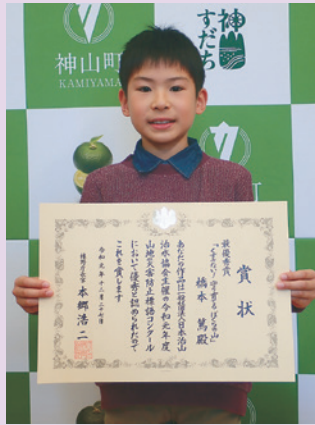 神山町
KAMIYAMA
神山
すだち
賞状
最優秀賞
橋本 篤殿
あなたの作品は一般社団法人日本治山
治水協会主催の令和元年度
山地災害防止標語コンクール
において優秀と認められたので
これを賞します
令和元年十二月二十七日
林野庁長官 本郷浩二